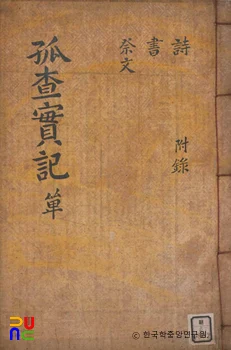 詩
書
祭文
附錄
孤査實記 單
© 한국학중앙연구원